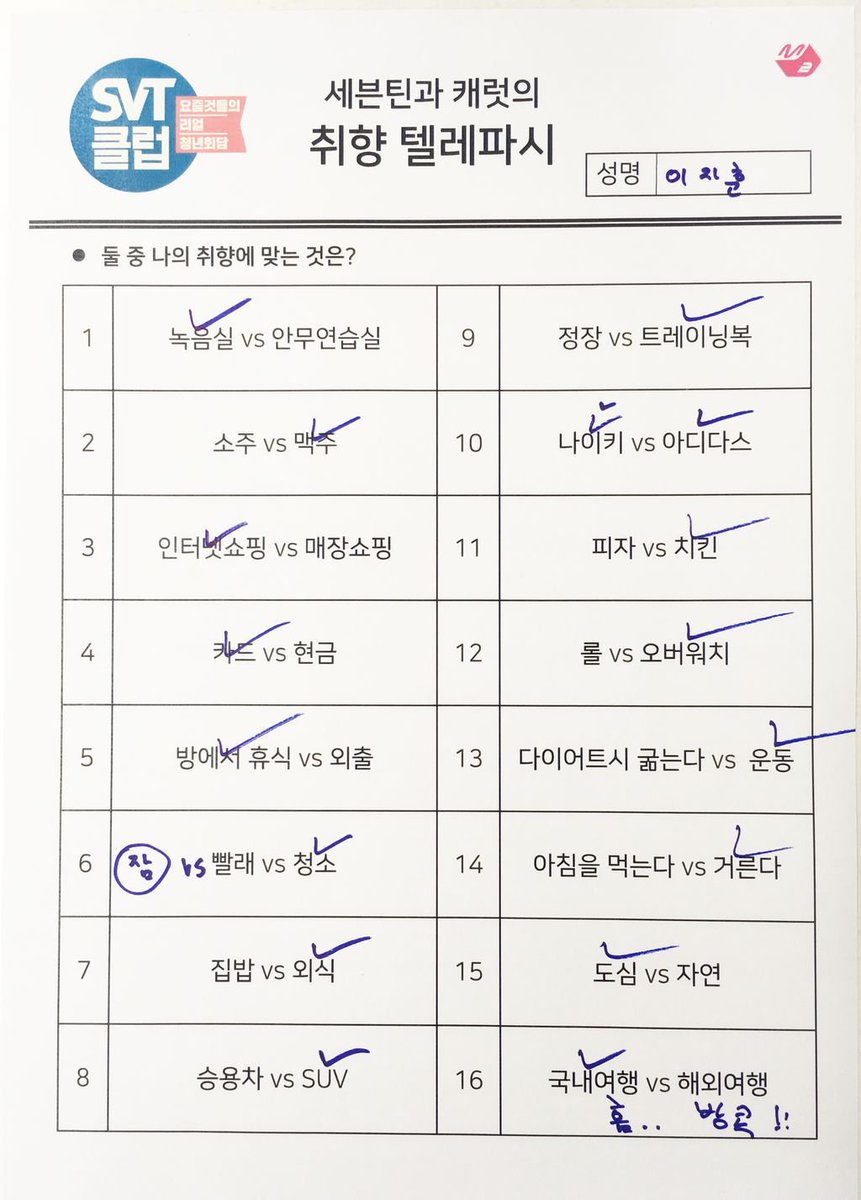 SVT
클럽
요즘것들의
리얼
청년회담
M2
세븐틴과 캐럿의
취향 텔레파시
성명 이지훈
● 둘 중 나의 취향에 맞는 것은?
1 녹음실 vs 안무연습실
2 소주 vs 맥주
3 인터넷쇼핑 vs 매장쇼핑
4 카드 vs 현금
5 방에서 휴식 vs 외출
6 잠 vs 빨래 vs 청소
7 집밥 vs 외식
8 승용차 vs SUV
9 정장 vs 트레이닝복
10 나이키 vs 아디다스
11 피자 vs 치킨
12 롤 vs 오버워치
13 다이어트시 굶는다 vs 운동
14 아침을 먹는다 vs 거른다
15 도심 vs 자연
16 국내여행 vs 해외여행
흠.. 방콕!!